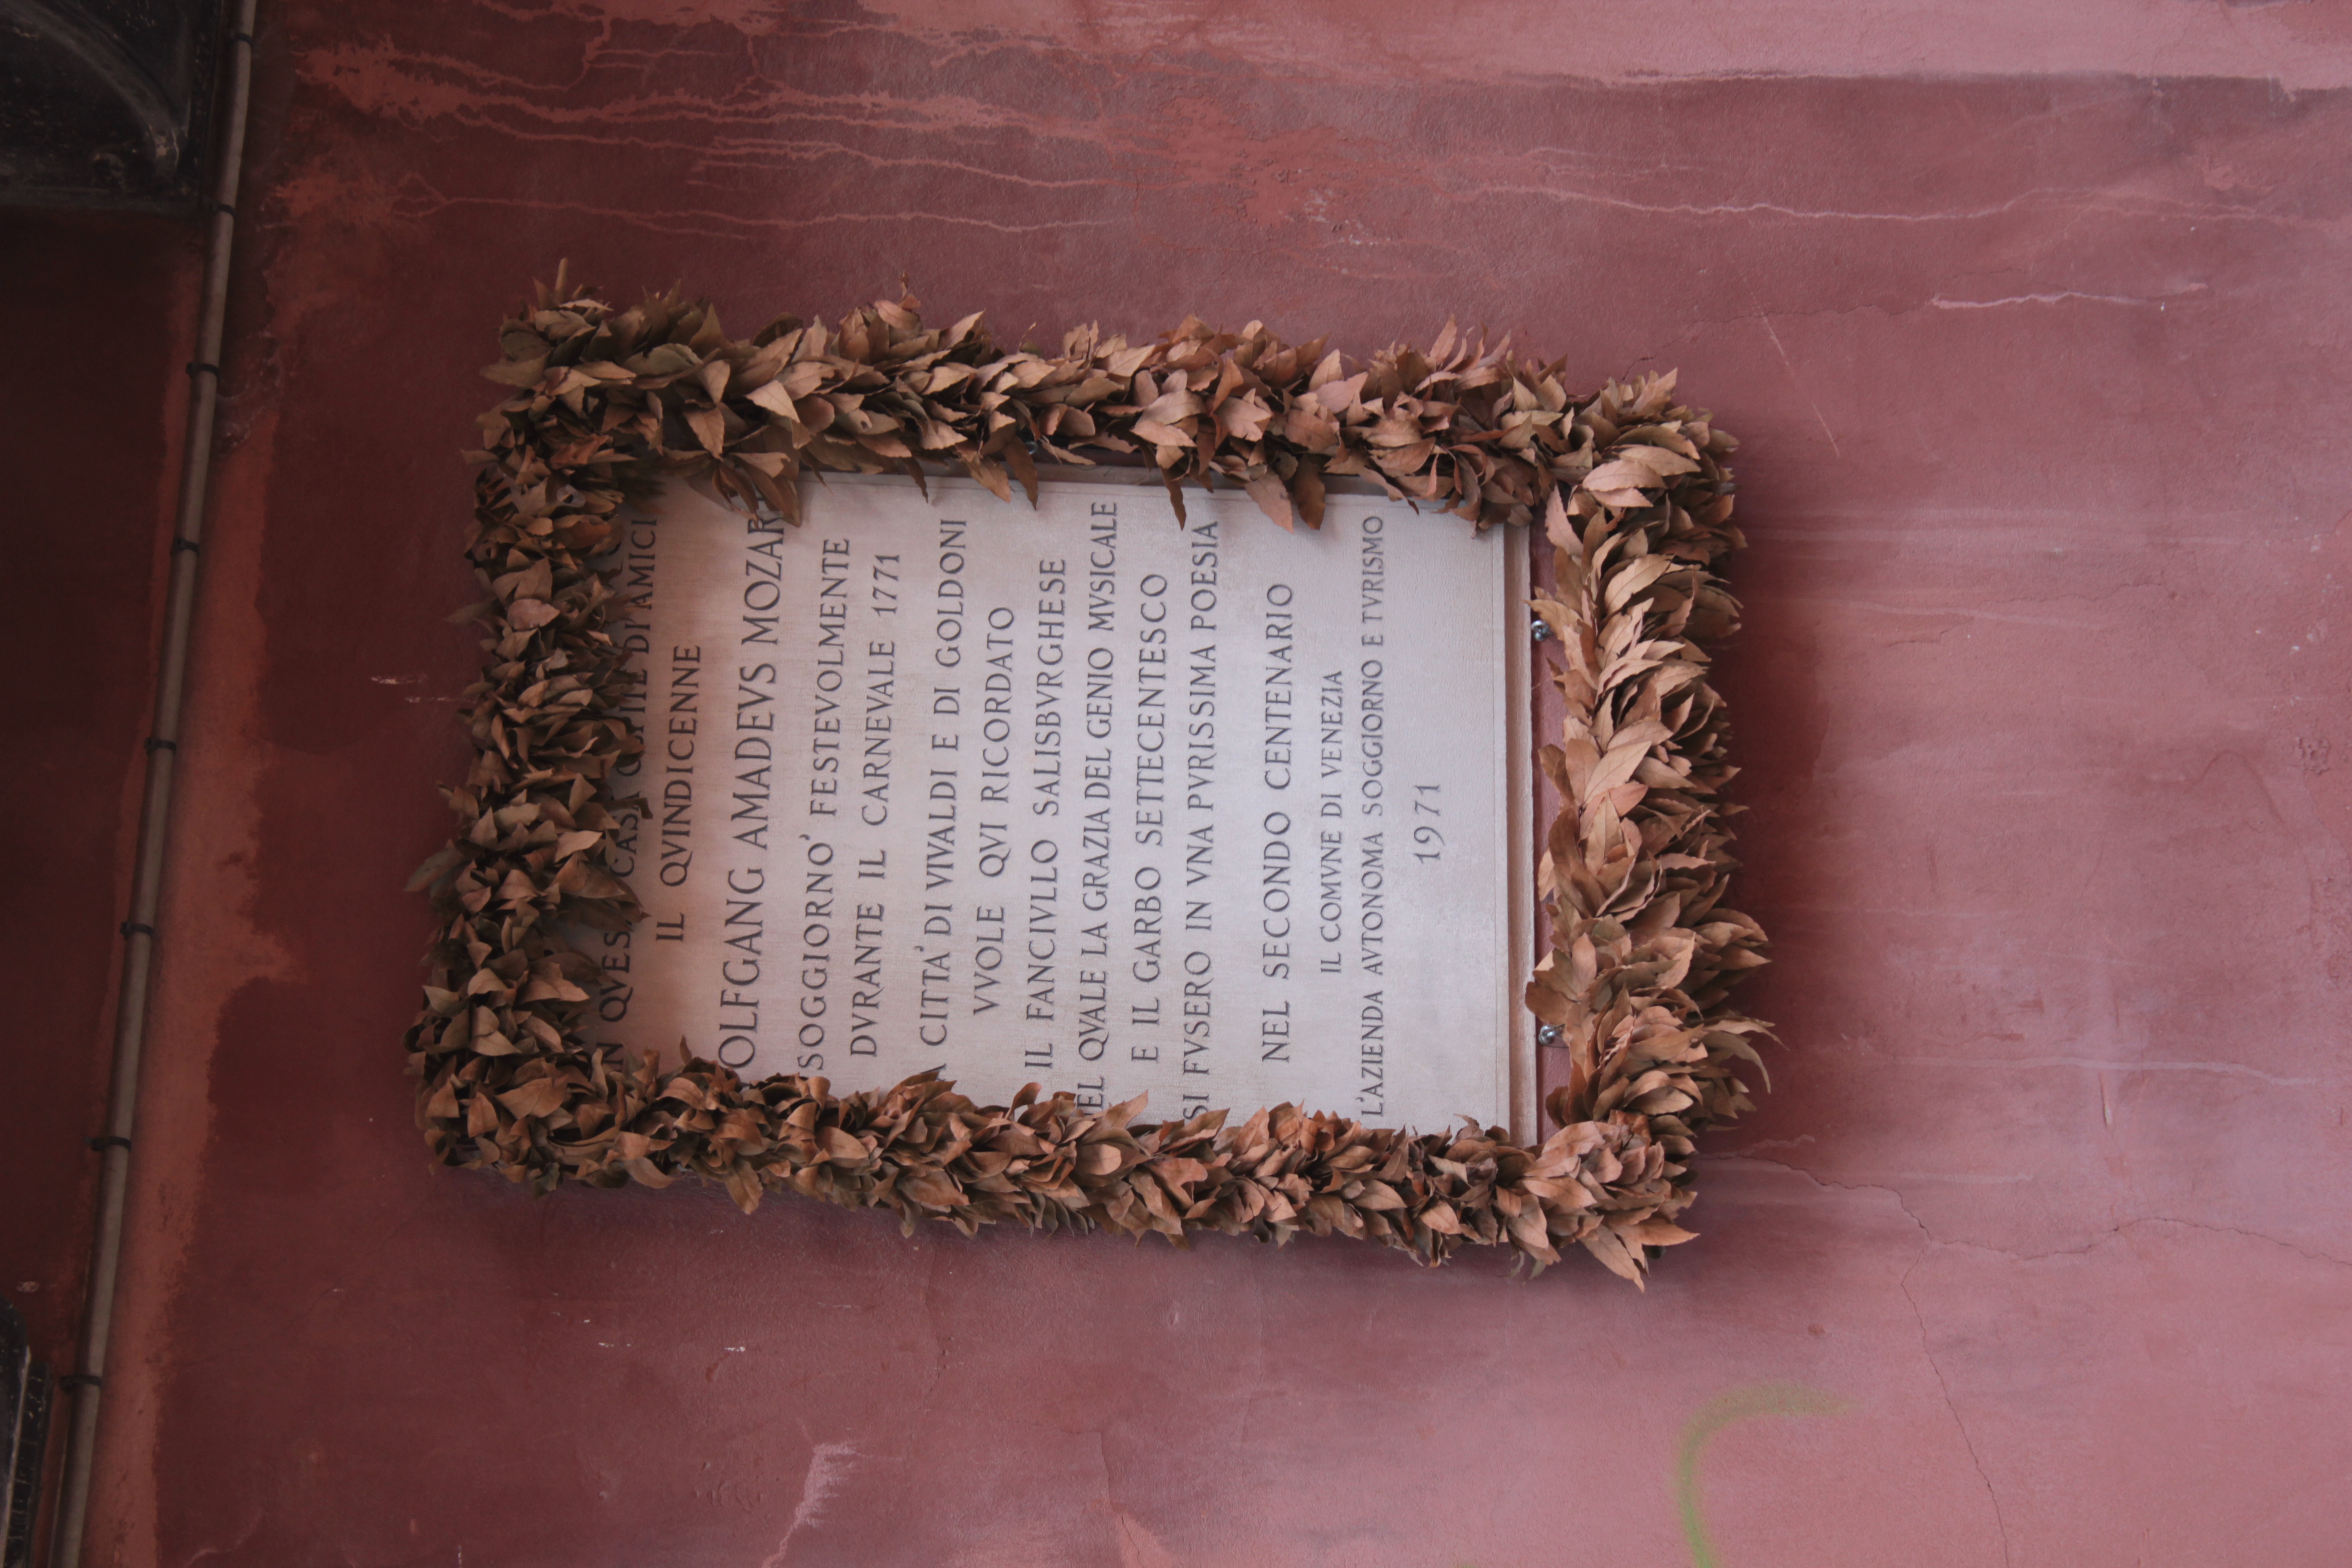 IN QVES CASA OSPITE DI AMICI
IL QVINDICENNE
OLFGANG AMADEVS MOZAR
SOGGIORNO' FESTEVOLMENTE
DVRANTE IL CARNEVALE 1771
A CITTA' DI VIVALDI E DI GOLDONI
VVOLE QVI RICORDATO
IL FANCIVLLO SALISBVRGHESE
EL QVALE LA GRAZIA DEL GENIO MVSICALE
E IL GARBO SETTECENTESCO
SI FVSERO IN VNA PVRISSIMA POESIA
NEL SECONDO CENTENARIO
IL COMVNE DI VENEZIA
L'AZIENDA AVTONOMA SOGGIORNO E TVRISMO
1971